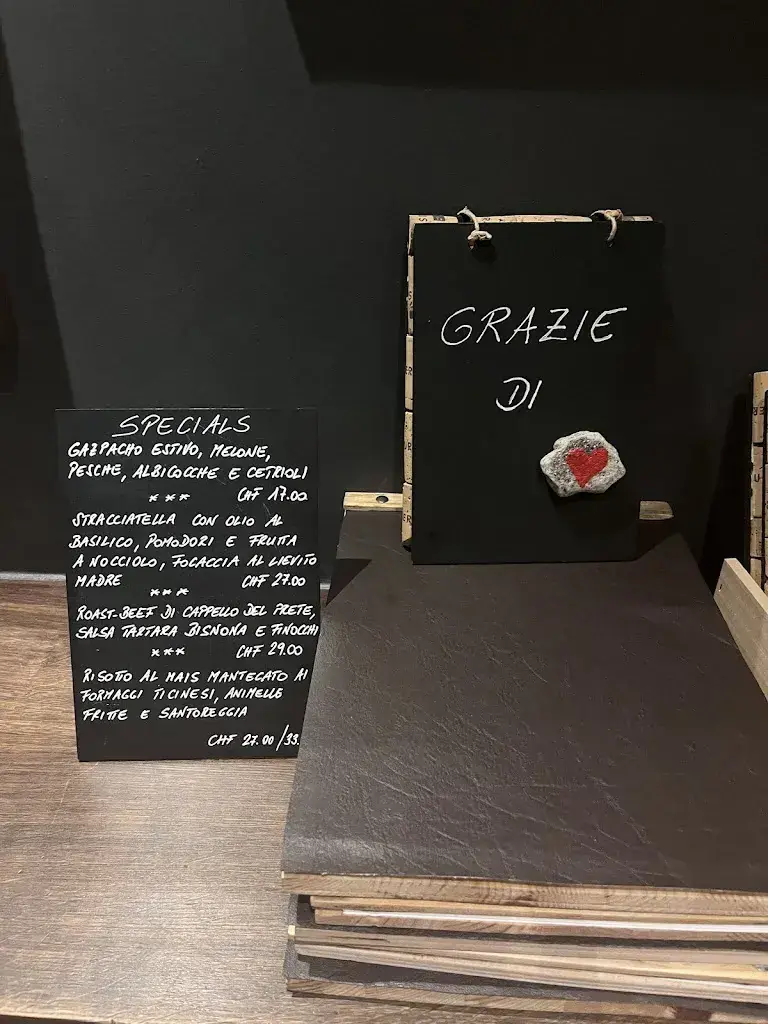 GRAZIE
DI
SPECIALS
GAZPACHO ESTIVO, MELONE,
PESCHE, ALBICOCCHE E CETRIOLI
*** CHF 17.00
STRACCIATELLA CON OLIO AL
BASILICO, POMODORI E FRUTTA
A NOCCIOLO, FOCACCIA AL LIEVITO
MADRE CHF 27.00
***
ROAST-BEEF DI CAPPELLO DEL PRETE,
SALSA TARTARA BISNONA E FINOCCHI
*** CHF 29.00
RISOTTO AL MAIS MANTECATO AI
FORMAGGI TICINESI, ANIMELLE
FRITTE E SANTOREGGIA
CHF 27.00/33.